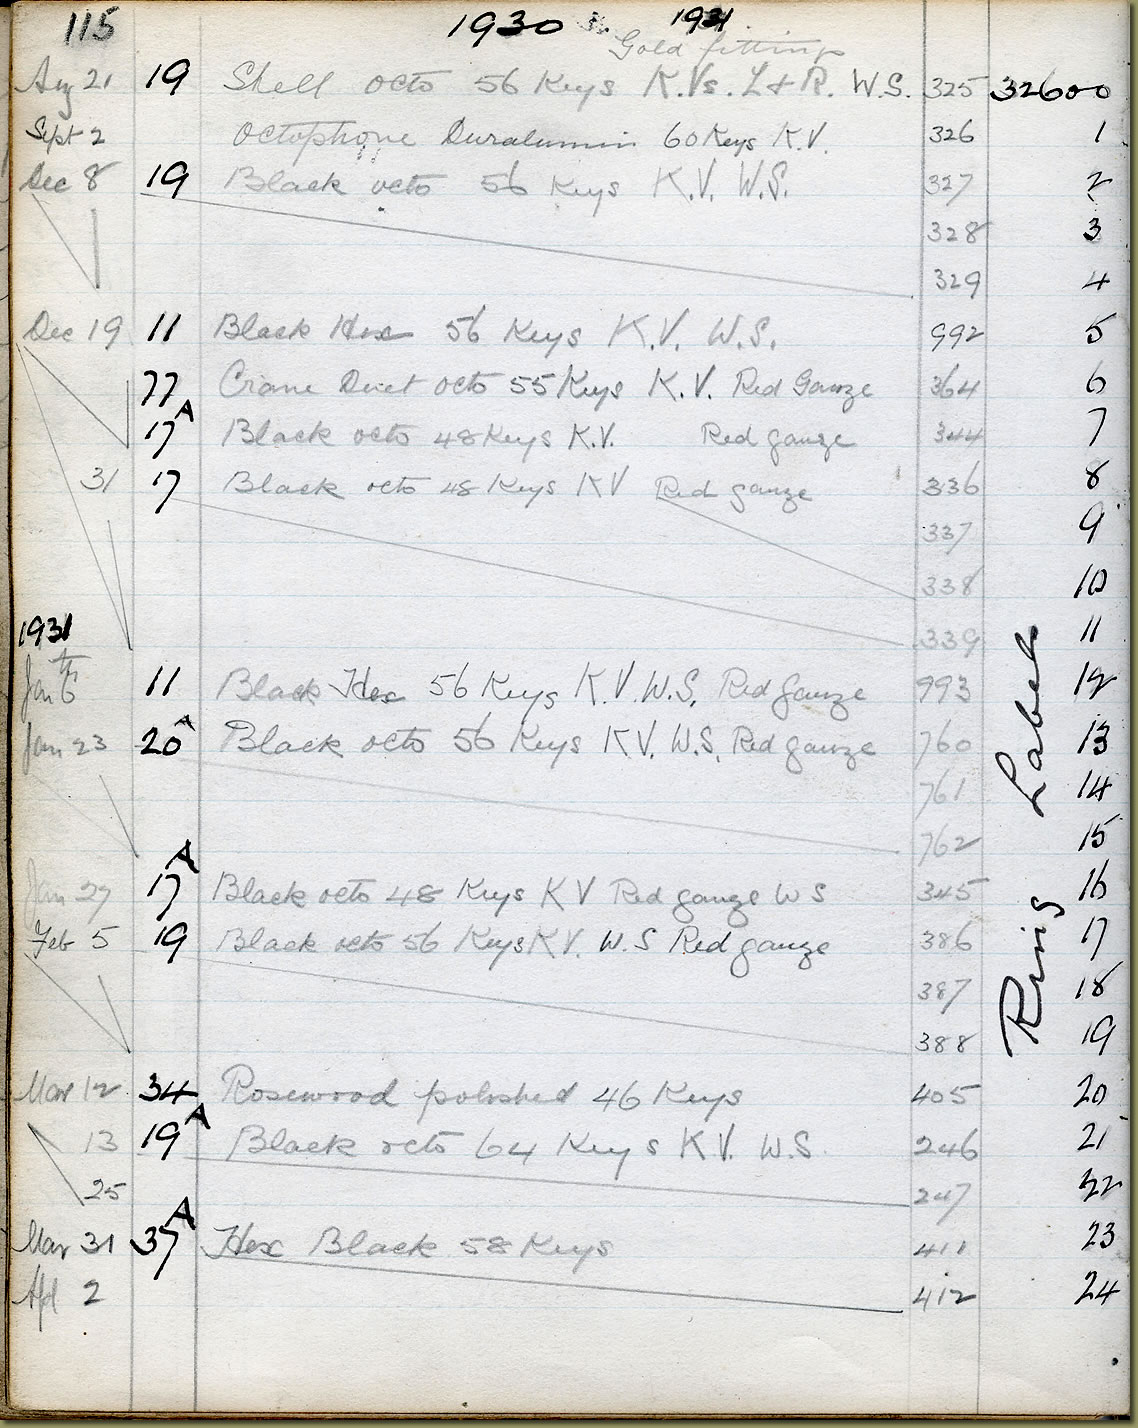 115 1930 1931
Gold fittings
Aug 21 19 Shell octo 56 Keys K.Vs. L & R. W.S. 325 32600
Sept 2 Octophone Duralumin 60 Keys K.V. 326 1
Dec 8 19 Black octo 56 Keys K.V. W.S. 327 2
328 3
329 4
Dec 19 11 Black Hex 56 Keys K.V. W.S. 992 5
77 Crane Duet octo 55 Keys K.V. Red Gauze 364 6
17A Black octo 48 Keys K.V. Red gauze 344 7
31 17 Black octo 48 Keys KV Red gauze 336 8
337 9
338 10
1931 339 11
Jan 6th 11 Black Hex 56 Keys K.V. W.S. Red gauze 993 12
Jan 23 20A Black octo 56 Keys KV. W.S. Red gauze 760 13
761 14
762 15
Jan 27 17A Black octo 48 Keys KV Red gauze WS 345 16
Feb 5 19 Black octo 56 Keys KV. W.S Red gauze 386 17
387 18
388 19
Mar 12 34 Rosewood polished 46 Keys 405 20
13 19A Black octo 64 Keys KV. W.S. 246 21
25 247 22
Mar 31 37A Hex Black 58 Keys 411 23
Apl 2 412 24
Ring Label